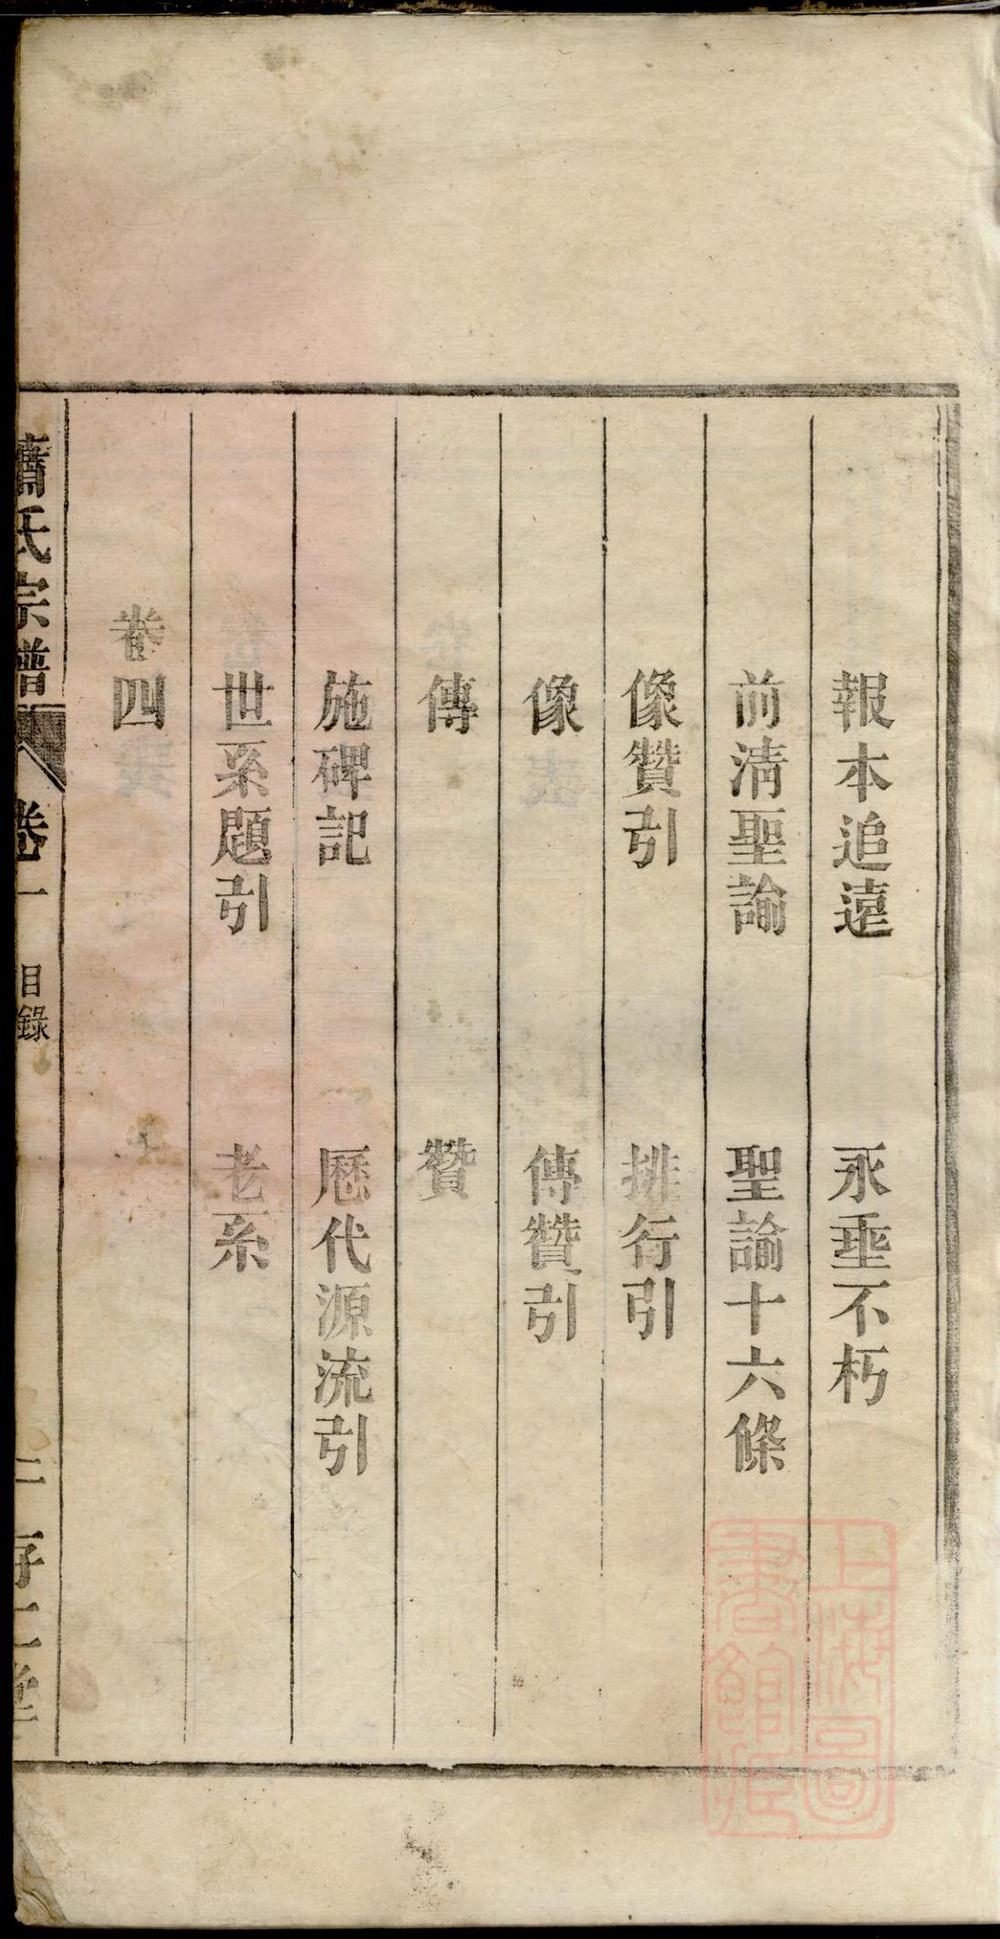 報本追遠 永垂不朽
前淸聖諭 聖諭十六條
像贊引 排行引
像 傳贊引
傳 贊
施碑記 歷代源流引
世系題引 老系
卷四
氏宗譜 卷一 目錄 二 存仁堂
上海圖書館藏